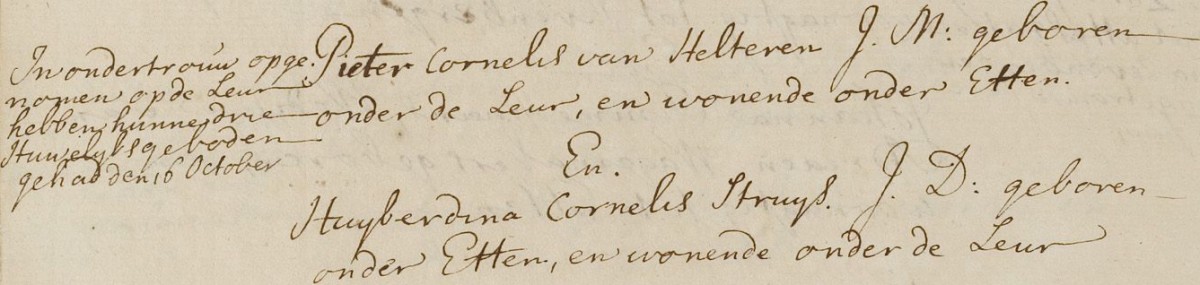 In ondertrouw opge:
nomen op de Leur
hebben hunne drie
Huwelyksgeboden
gehad den 16 October
Pieter Cornelis van Helteren J. M: geboren
onder de Leur, en wonende onder Etten.
En.
Huyberdina Cornelis Struys. J. D: geboren
onder Etten, en wonende onder de Leur